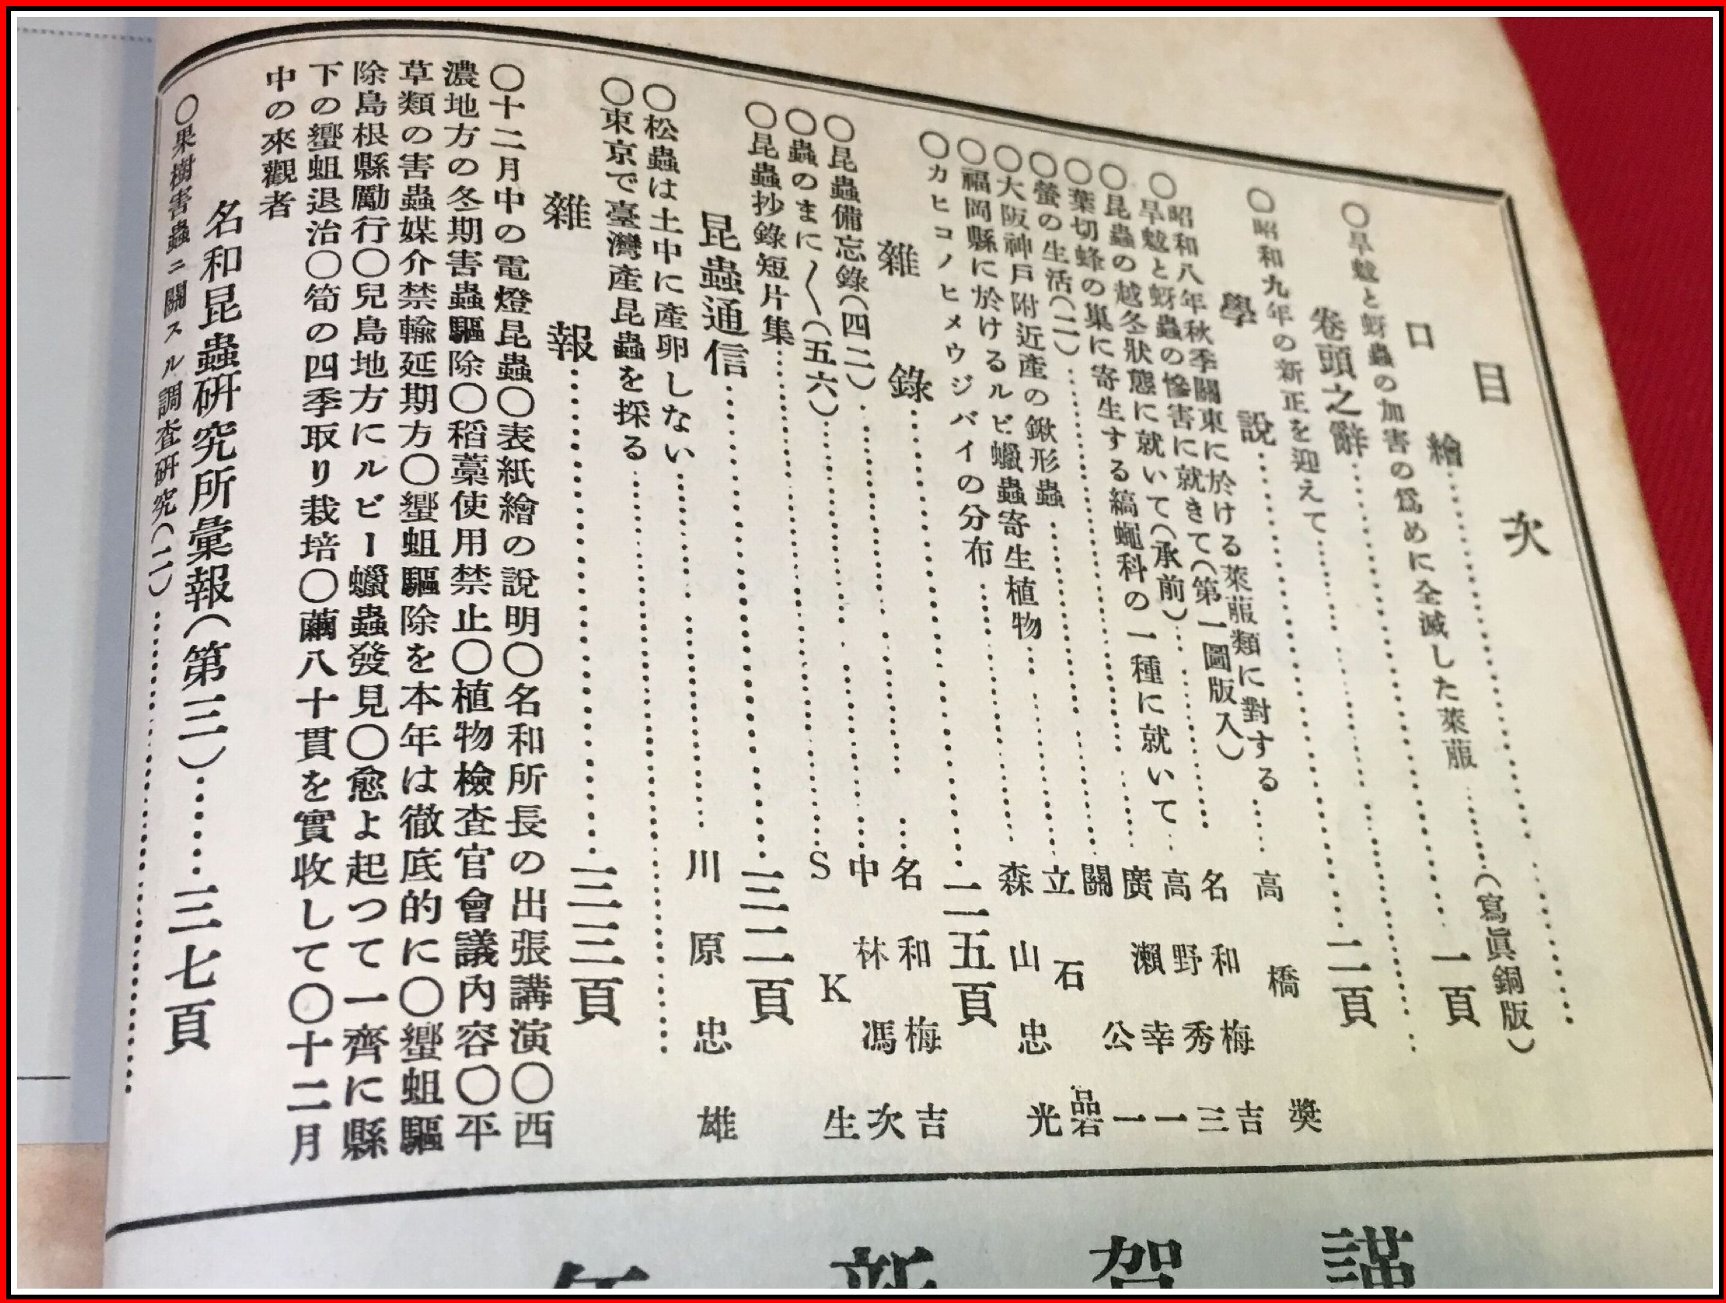 目次
口繪……(寫眞銅版)
○旱魃と蚜蟲の加害の爲めに全滅した萊菔
卷頭之辭……一頁
○昭和九年の新正を迎えて
學說……二頁
○昭和八年秋季關東に於ける萊菔類に對する
旱魃と蚜蟲の慘害に就きて(第一圖版入)……高橋奬
○昆蟲の越冬狀態に就いて(承前)……名和梅吉
○葉切蜂の巢に寄生する縞蠅科の一種に就いて……高野秀三
○螢の生活(二)……廣瀨幸一
○大阪神戶附近產の鍬形蟲……關公一
○福岡縣に於けるルビ蠟蟲寄生植物……立石嵒
○カヒコノヒメウジバイの分布……森山忠光
雜錄……二五頁
○昆蟲備忘錄(四二)……名和梅吉
○蟲のまに〱(五六)……中林馮次
○昆蟲抄錄短片集……S K 生
昆蟲通信……三二頁
○松蟲は土中に產卵しない……川原忠雄
○東京で臺灣產昆蟲を採る
雜報……三三頁
○十二月中の電燈昆蟲○表紙繪の說明○名和所長の出張講演○西
濃地方の冬期害蟲驅除○稻藁使用禁止○植物檢查官會議內容○平
草類の害蟲媒介禁輸延期方○蠁蛆驅除を本年は徹底的に○蠁蛆驅
除島根縣勵行○兒島地方にルビー蠟蟲發見○愈よ起つて一齊に縣
下の蠁蛆退治○筍の四季取り栽培○繭八十貫を實收して○十二月
中の來觀者
名和昆蟲硏究所彙報(第三)……三七頁
○果樹害蟲ニ關スル調査硏究(二)
謹賀新年